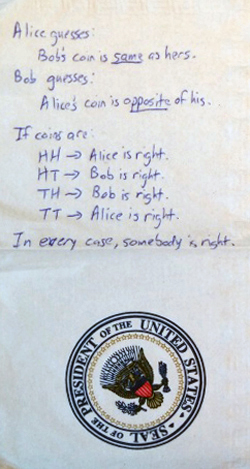 Alice guesses:
Bob's coin is same as hers.
Bob guesses:
Alice's coin is opposite of his.
If coins are:
HH → Alice is right.
HT → Bob is right.
TH → Bob is right.
TT → Alice is right.
In every case, somebody is right.
SEAL OF THE PRESIDENT OF THE UNITED STATES